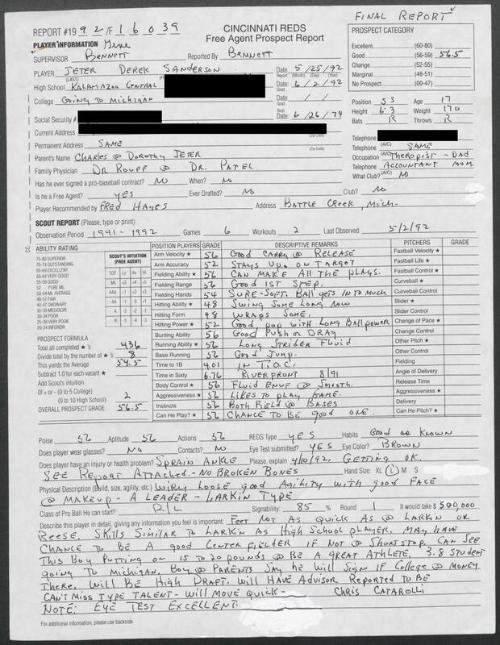 FINAL REPORT
REPORT #19 92/F16039
CINCINNATI REDS
Free Agent Prospect Report
PLAYER INFORMATION Gene
SUPERVISOR BENNETT Reported By BENNETT
PLAYER JETER DEREK SANDERSON Date 5/25/92
High School KALAMAZOO CENTRAL Date 6/2/92
College GOING TO MICHIGAN Date / /
Social Security # 6/26/74
Current Address
Permanent Address SAME
Parent's Name CHARLES @ DOROTHY JETER
Family Physician DR. ROUPP @ DR. PATEL
Has he ever signed a pro-baseball contract? NO When? NO
Is he a Free Agent? YES Ever Drafted? NO Club? NO
Player Recommended by FRED HAYES Address BATTLE CREEK, MICH.
PROSPECT CATEGORY
Excellent (60-80)
Good (56-59) 56.5
Change (52-55)
Marginal (48-51)
No Prospect (00-47)
Position SS Age 17
Height 6.3 Weight 170
Bats R Throws R
Telephone
Telephone SAME
Occupation THERAPIST - DAD
Telephone ACCOUNTANT MOM
What Club? NO
SCOUT REPORT (Please, type or print)
Observation Period 1991-1992 Games 6 Workouts 2 Last Observed 5/2/92
ABILITY RATING
SCOUT'S INTUITION (FREE AGENT)
POSITION PLAYERS GRADE DESCRIPTIVE REMARKS PITCHERS GRADE
Arm Velocity ★ 56 GOOD CARRY @ RELEASE Fastball Velocity ★
Arm Accuracy 52 STAYS UP ON TARGET Fastball Life ★
Fielding Ability ★ 56 CAN MAKE ALL THE PLAYS. Fastball Control
Fielding Range 56 GOOD 1ST STEP. Curveball ★
Fielding Hands 54 SURE-SOFT. BALL GETS IN TO MUCH Curveball Control
Hitting Ability ★ 48 SWING SOME LONG NOW Slider ★
Hitting Form 48 WRAPS SOME. Slider Control
Hitting Power ★ 52 GOOD POP WITH LONG BALL POWER Change of Pace ★
Bunting Ability 56 GOOD PUSH @ DRAG Change Control
Running Ability ★ 56 LONG STRIDER FLUID Other Pitch ★
Base Running 56 GOOD JUMP. Other Control
Time to 1B 4.01 Fielding
Time in Sixty 6.76 RIVERFRONT 8/91 Angle of Delivery
Body Control ★ 56 FLUID @ SMOOTH. Release Time
Aggressiveness ★ 56 LIKES TO PLAY GAME. Aggressiveness ★
Instincts 56 BOTH FIELD @ BASES Delivery
Can He Play? ★ 56 CHANCE TO BE GOOD ONE. Can He Pitch? ★
PROSPECT FORMULA
Total all completed ★'s 436
Divide total by the number of ★'s 8
This yields the Average 54.5
Subtract 1.0 for each vacant ★
Add Scout's intuition
(# + or - (0 to 5 College)
(0 to 10 High School) 2
OVERALL PROSPECT GRADE 56.5
Poise 56 Aptitude 56 Actions 56 REDS Type YES Habits GOOD AS KNOWN
Does player wear glasses? NO Contacts? NO Eye Test submitted? YES Eye Color? BROWN
Does player have an injury or health problem? SPRAIN ANKLE Please, explain 4/10/92. GETTING OK.
SEE REPORT ATTACHED - NO BROKEN BONES Hand Size: XL L M S
Physical Description (Build, size, agility, etc.) WIRY LOOSE GOOD AGILITY WITH GOOD FACE
@ MAKEUP - A LEADER - LARKIN TYPE
Class of Pro Ball He can start? R/L Signability: 85 % Round 1 It would take $ 500,000
Describe this player in detail, giving any information you feel is important: FEET NOT AS QUICK AS @ LARKIN OR
REESE, SKILLS SIMILAR TO LARKIN AS HIGH SCHOOL PLAYER, MAY HAVE
CHANCE TO BE A GOOD CENTER FIELDER IF NOT @ SHORTSTOP. CAN SEE
THIS BOY PUTTING ON 15 TO 20 POUNDS @ BE A GREAT ATHLETE. 3.8 STUDENT
GOING TO MICHIGAN, BOY @ PARENTS SAY HE WILL SIGN IF COLLEGE @ MONEY
THERE. WILL BE HIGH DRAFT. WILL HAVE ADVISOR REPORTED TO BE
CAN'T MISS TYPE TALENT - WILL MOVE QUICK - CHRIS CATAROLLI
NOTE: EYE TEST EXCELLENT.
For additional information, please use backside.